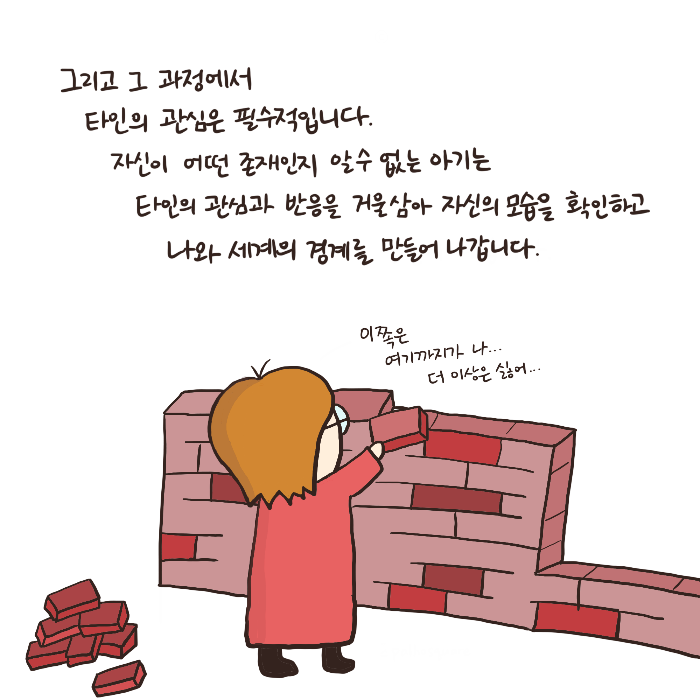 그리고 그 과정에서
타인의 관심은 필수적입니다.
자신이 어떤 존재인지 알수 없는 아기는
타인의 관심과 반응을 거울삼아 자신의 모습을 확인하고
나와 세계의 경계를 만들어 나갑니다.
이쪽은
여기까지가 나...
더 이상은 싫어...